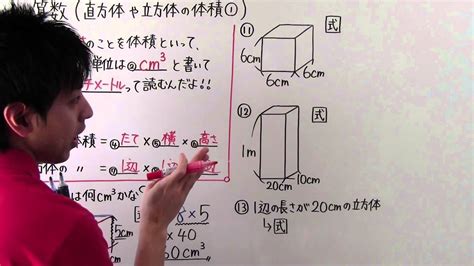 算数(直方体や立方体の体積①)
のことを体積といって、
単位は②cm³と書いて
チメートルって読むんだよ!!
体積=④たて×⑤横×⑥高さ
方体の 〃 =⑦1辺×⑧1辺×
は何cm³かな
5cm
8×5
×40
cm³
⑪
式
6cm
6cm
6cm
⑫
式
1m
20cm
10cm
⑬1辺の長さが20cmの立方体
↳式